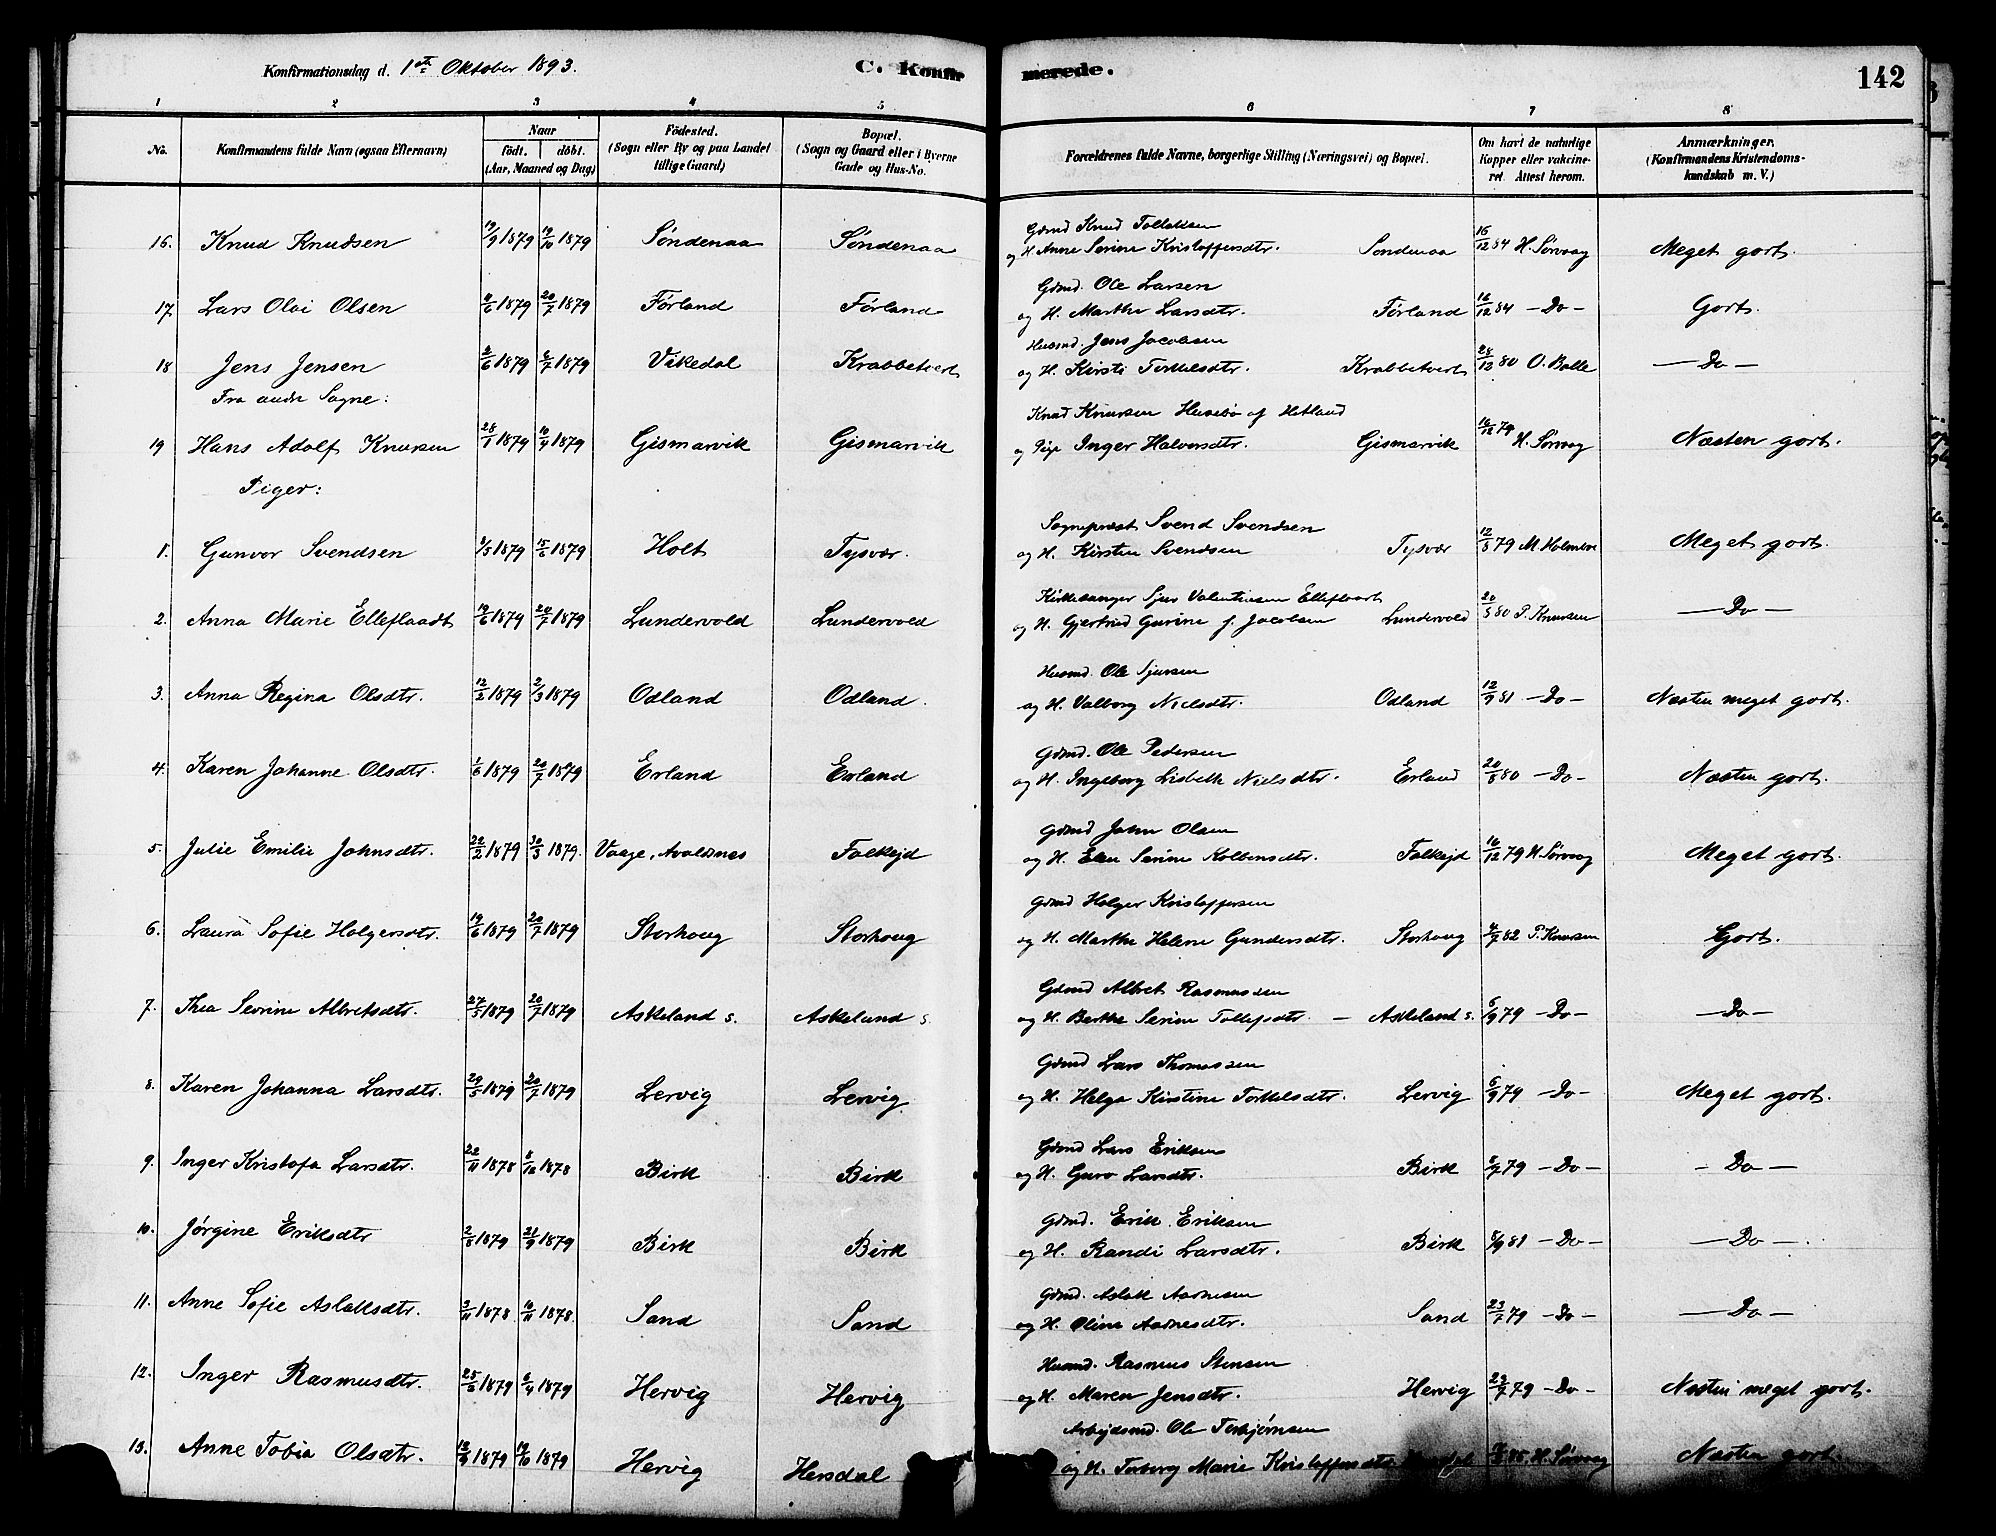 Konfirmationsdag d. 1ste Oktober 1893.
C. Konfirmerede.
142
1 2 3 4 5 6 7 8
No.
Konfirmandens fulde Navn (ogsaa Efternavn)
Naar
födt. döbt.
(Aar, Maaned og Dag)
Födested.
(Sogn eller By og paa Landet
tillige Gaard)
Bopæl.
(Sogn og Gaard eller i Byerne
Gade og Hus-No.
Forældrenes fulde Navne, borgerlige Stilling (Næringsvei) og Bopæl.
Om havt de naturlige
Kopper eller vakcine-
ret. Attest herom.
Anmærkninger.
(Konfirmandens Kristendoms-
kundskab m. V.)
Gbmd Knud Tollaksen
16. Knud Knudsen 19/9 1879 19/10 1879 Söndenaa Söndenaa og H. Anne Serine Kristoffersdtr. Söndenaa 16/12 84 H. Sörvaag Meget godt.
Gbmd. Ole Larsen
17. Lars Olai Olsen 1879 20/7 1879 Förland Förland og H. Marthe Larsdtr. Förland 16/12 84 – Do – Godt.
Husmd. Jens Jacobsen
18 Jens Jensen 1879 1879 Vikedal Krabbetveit og H. Kirsti Torkelsdtr. Krabbetveit 28/12 80 O. Balle – Do –
Fra andre Sogne:
Knud Knudsen Husebö af Hetland
19 Hans Adolf Knutsen 28/1 1879 10/4 1879 Gismarvik Gismarvik og Pige Inger Halvorsdtr. Gismarvik 16/12 79 H. Sörvaag Næsten godt.
Piger:
Sognepræst Svend Svendsen
1. Gunvor Svendsen 1879 15/6 1879 Holt Tysvær. og H. Kirsten Svendsen Tysvær 12/8 79 M. Meget godt.
Kirkesanger Sjur Valentinsen Elleflaadt
2. Anna Marie Elleflaadt 19/6 1879 20/7 1879 Lundervold Lundervold og H. Gjertrud Gurine f. Jacobsen Lundervold 80 P. Knutsen – Do –
Husmd. Ole Sjursen
3. Anna Regina Olsdtr. 12/2 1879 2/3 1879 Odland Odland. og H. Valborg Nielsdtr. Odland 12/9 81 – Do – Næsten meget godt.
Gbmd. Ole Pedersen
4. Karen Johanne Olsdtr. 1/6 1879 20/7 1879 Erland Erland og H. Ingeborg Lisbeth Nielsdtr. Erland 20/8 80 – Do – Næsten godt.
Gbmd John Olsen
5. Julie Emilie Johnsdtr. 22/2 1879 30/3 1879. Vaage, Avaldsnes Falkejd og H. Elen Serine Kolbensdtr. Falkejd 16/12 79 H. Sörvaag Meget godt.
Gbmd Holger Kristoffersen
6. Laura Sofie Holgersdtr. 19/6 1879 20/7 1879 Storhoug Storhoug og H. Marthe Helene Gundersdtr. Storhoug 82 P. Knutsen Godt.
Gbmd Albret Rasmussen
7. Thea Serine Albretsdtr. 27/5 1879 20/7 1879 Askeland s. Askeland s. og H. Berthe Serine Tollefsdtr. – Askeland s. 6/9 79 – Do – – Do –
Gbmd Lars Thomassen
8. Karen Johanna Larsdtr. 29/5 1879 20/7 1879 Lervig Lervig. og H. Helga Kirstine Torkelsdtr. Lervig 6/9 79 – Do – Meget godt.
Gbmd Lars Eriksen
9. Inger Kristofa Larsdtr. 22/11 1878 8/12 1878 Birk Birk og H. Guro Larsdtr. Birk 79 – Do – – Do –
Gbmd. Erik Eriksen
10. Jörgine Eriksdtr 2/8 1879 21/9 1879 Birk Birk og H. Randi Larsdtr. Birk 8/9 81 – Do – – Do –
Gbmd. Aslak Aadnesen
11. Anne Sofie Aslaksdtr. 2/11 1878 10/11 1878. Sand Sand og H. Oline Aadnesdtr. Sand 23/7 79 – Do – – Do –
Husmd. Rasmus Stensen
12. Inger Rasmusdtr. 25/3 1879 6/4 1879 Hervig Hervig og H. Maren Jensdtr. Hervig 23/7 79 – Do – Næsten meget godt.
Arbejdsmd. Ole Torbjörnsen
13. Anne Tobia Olsdtr. 1879 19/10 1879 Hervig Hersdal og H. Torborg Marie Kristoffersdtr. H. Sörvaag Næsten godt.